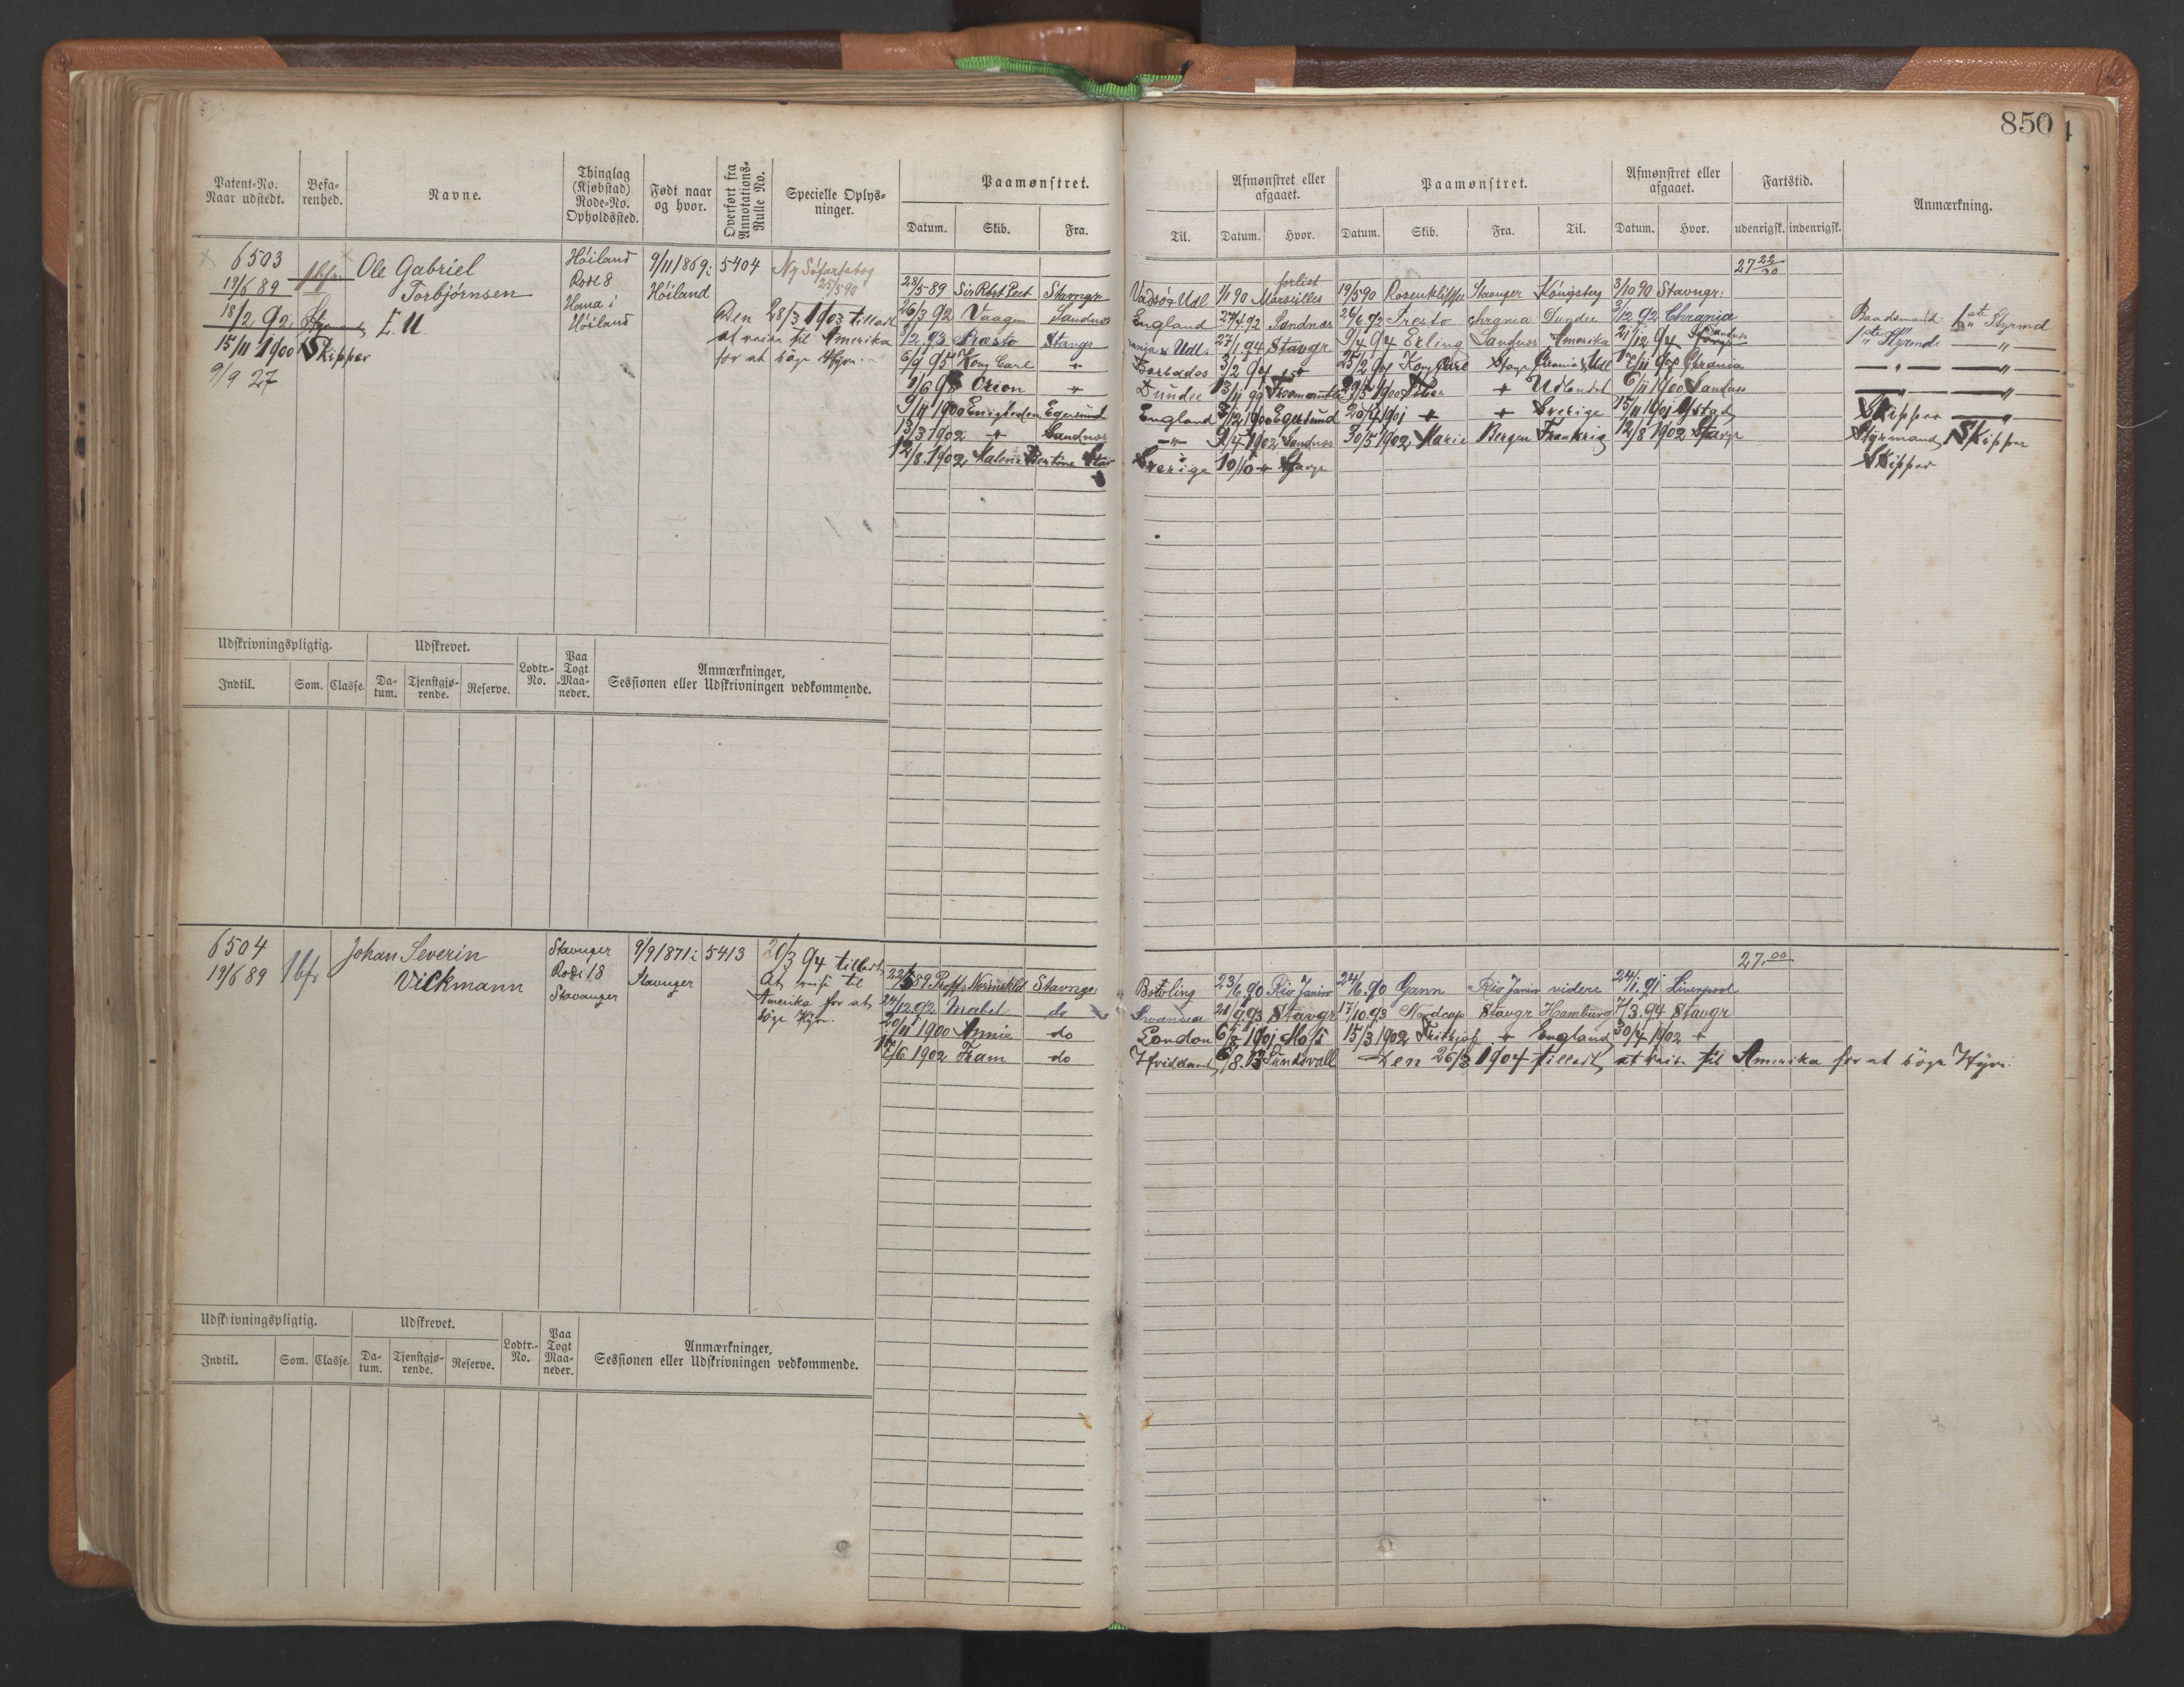 850
Patent-No.
Naar udstedt.
Befa-
renhed.
Navne.
Thinglag
(Kjøbstad)
Rode-No.
Opholdssted.
Født naar
og hvor.
Overført fra
Annotations-
Rulle No.
Specielle Oplys-
ninger.
Paamønstret.
Datum. Skib. Fra.
Til.
Afmønstret eller
afgaaet.
Datum. Hvor.
Paamønstret.
Datum. Skib. Fra. Til.
Afmønstret eller
afgaaet.
Datum. Hvor.
Fartstid.
udenrigsk. indenrigsk.
Anmærkning.
6503
19/6 89
18/2 92
15/11 1900
9/9 27
1bfr.
Skipper
Ole Gabriel
Torbjörnsen
E. U
Höiland
Rode 8
Hana i
Höiland
9/11 1869 i
Höiland
5404
Ny Söfartsbog
28/5 90
Den 28/3 1903 tilladt
at reise til Amerika
for at söge Hyre.
27 22/30
22/5-89 Sir Robt Peel Stavngr Vadsö & Udl 1/1 90 Marseilles forlist 19/5 90 Rosenkilde Stavnger Königsberg 3/10 90 Stavngr.
26/3 92 Vaagen Sandnes England 27/4.92 Sandnæs 26/6 92 Presto Chrania Dundee 3/12 92 Chrania Baadsmand 1ste Styrmd
8/12.93 Præsto Stavgr & Udl. 27/1 94 Stavgr 9/4 94 Erling Sandnes Amerika 21/12 94 1ste Styrmd —"—
6/9 95 Kong Carl " Barbados Kong Carl Chrania —"— —"—
Orion " Dundee 13/11 99 + Udlandet 6/11 1900 Sandnes —"—
9/11 1900 Enigheden Egersund England 3/12 1900 Egersund 20/4 1901 + + Sverige 15/11 1901 Ystad Skipper —"—
13/3 1902 + Sandnes —"— 9/4 1902 Sandnes 30/5 1902 Marie Bergen Frankrig 12/8 1902 Stavgr Styrmand Skipper
12/8.1902 Malene Bertine Stav Sverige 10/10 + Stavgr Skipper
Udskrivningspligtig.
Indtil. Som. Classe.
Udskrevet.
Da-
tum.
Tjenstgjø-
rende.
Reserve.
Lodtr.-
No.
Paa
Togt
Maa-
neder.
Anmærkninger,
Sessionen eller Udskrivningen vedkommende.
6504
19/6 89
1bfr
Johan Severin
Vickmann
Stavnger
Rode 18
Stavanger
9/9 1871 i
Stavnger
5413
20/3 94 tilladt
At reise til
Amerika for at
söge Hyre.
27.00
22/5 89. Proff. Stavnge 23/6.90 Rio Janiro 24/6.90 Gann Rio Janiro videre 24/1.91 Liverpool
24/12.92 Mabel do Swansea 21/9 93 Stavgr 17/10.93 Nordcap Stavgr Hamburg 7/3.94 Stavgr
20/11 1900 Annie do London 6/8 1901 Moss 15/3 1902 Frithjof + England 30/4 1902 +
1902 Fram do Hvidehavet Sundsvall Den 26/3 1904 tilladt at reise til Amerika for at söge Hyre.
Udskrivningspligtig.
Indtil. Som. Classe.
Udskrevet.
Da-
tum.
Tjenstgjø-
rende.
Reserve.
Lodtr.-
No.
Paa
Togt
Maa-
neder.
Anmærkninger,
Sessionen eller Udskrivningen vedkommende.